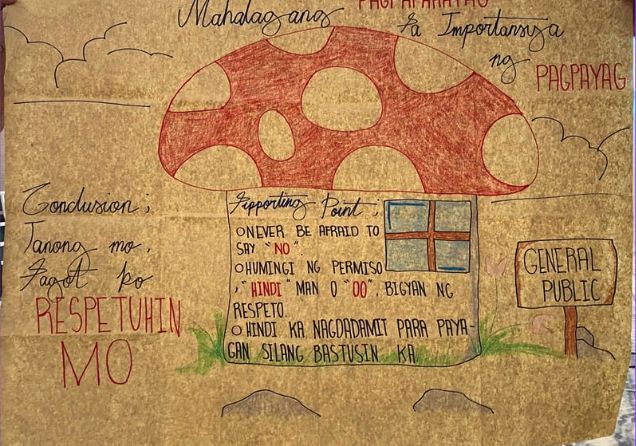 Mahalagang PAGPAPAHAYAG
sa Importansya
ng
PAGPAYAG
Supporting Point ;
NEVER BE AFRAID TO
SAY "NO".
HUMINGI NG PERMISO
, "HINDI" MAN O "OO", BIGYAN NG
RESPETO.
HINDI KA NAGDADAMIT PARA PAYA-
GAN SILANG BASTUSIN KA
Conclusion ;
Tanong mo,
Sagot ko
RESPETUHIN
MO
GENERAL
PUBLIC